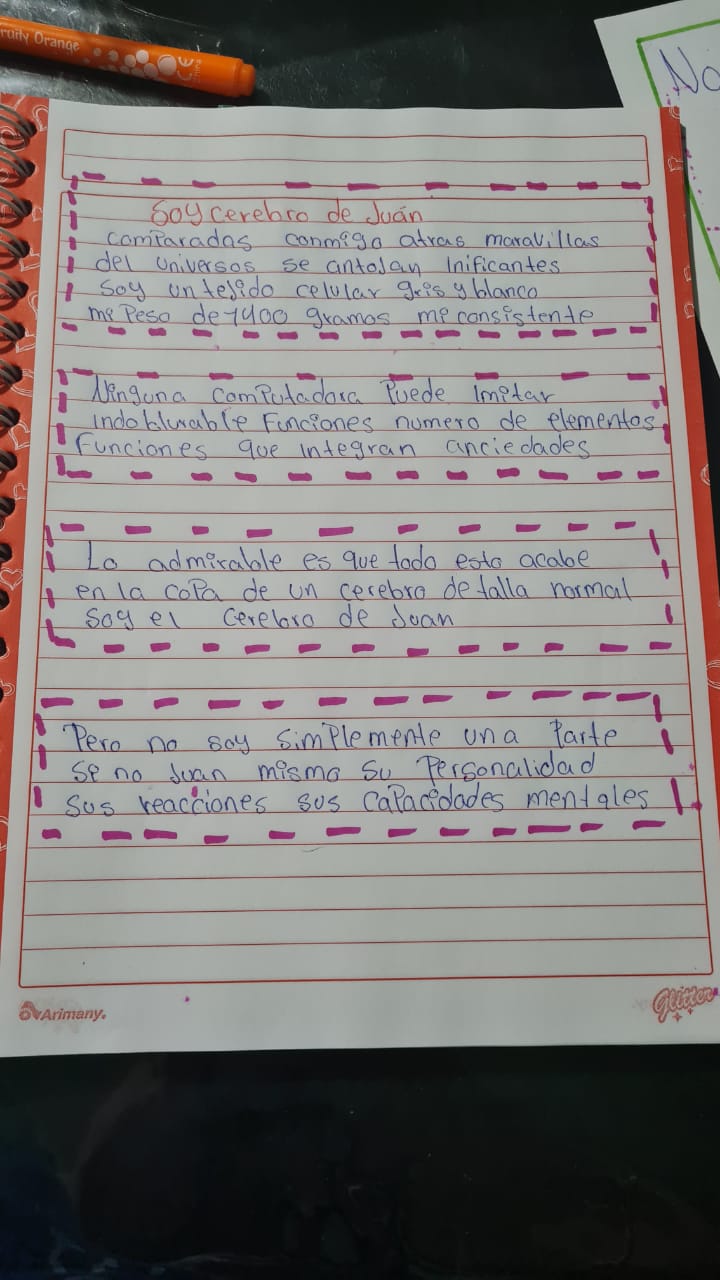 ruity Orange
CE
No
Soy cerebro de Juán
comparadas conmigo atras maravillas
del universos se antojan Inificantes
Soy un tejido celular gris y blanco
me Peso de 1400 gramos me consistente
Ninguna computadora Puede Imitar
Funciones numero de elementos
Funciones que integran anciedades
Lo admirable es que todo esto acabe
en la coPa de un cerebro de talla normal
Soy el cerebro de Juan
Pero no soy SimPlemente una Parte
Se no Juan mismo Su Personalidad
Sus reacciones sus caPacidades mentales
Arimany.
Glitter